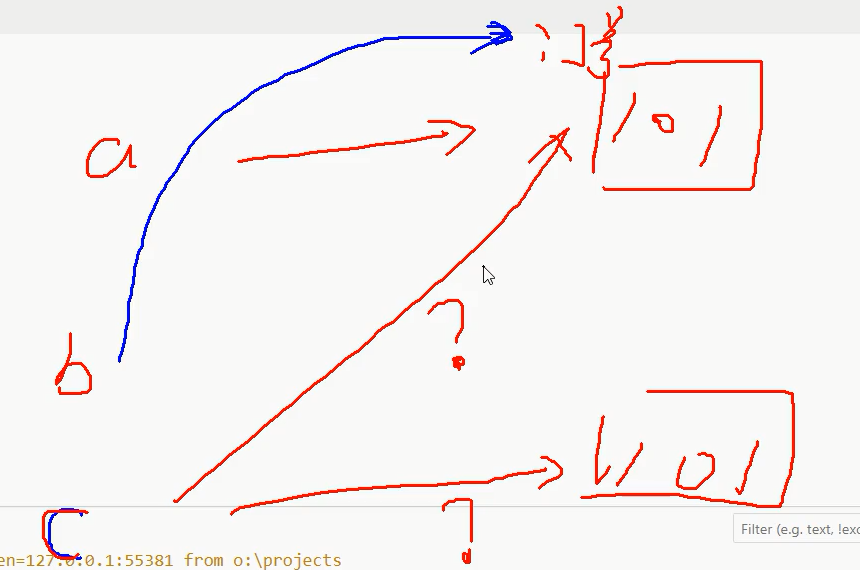 a
101
b
?
101
?
c
Filter (e.g. text, !exc
en=127.0.0.1:55381 from o:\projects